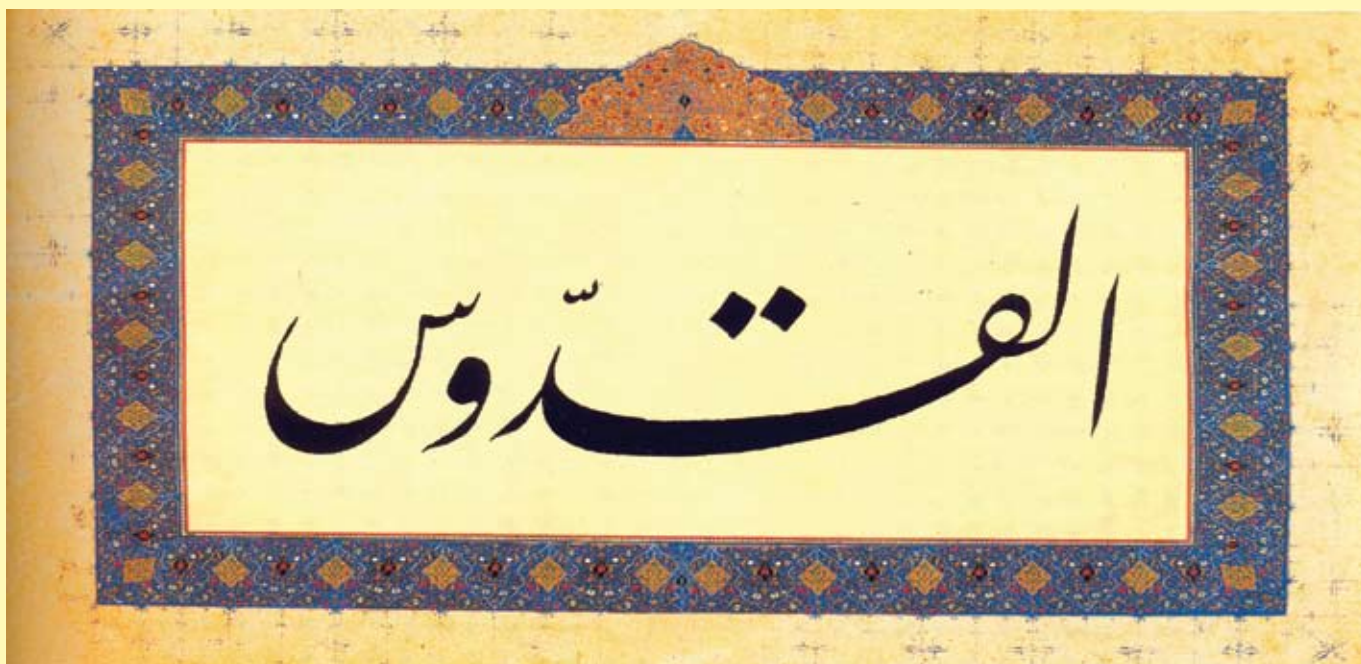 القدّوس